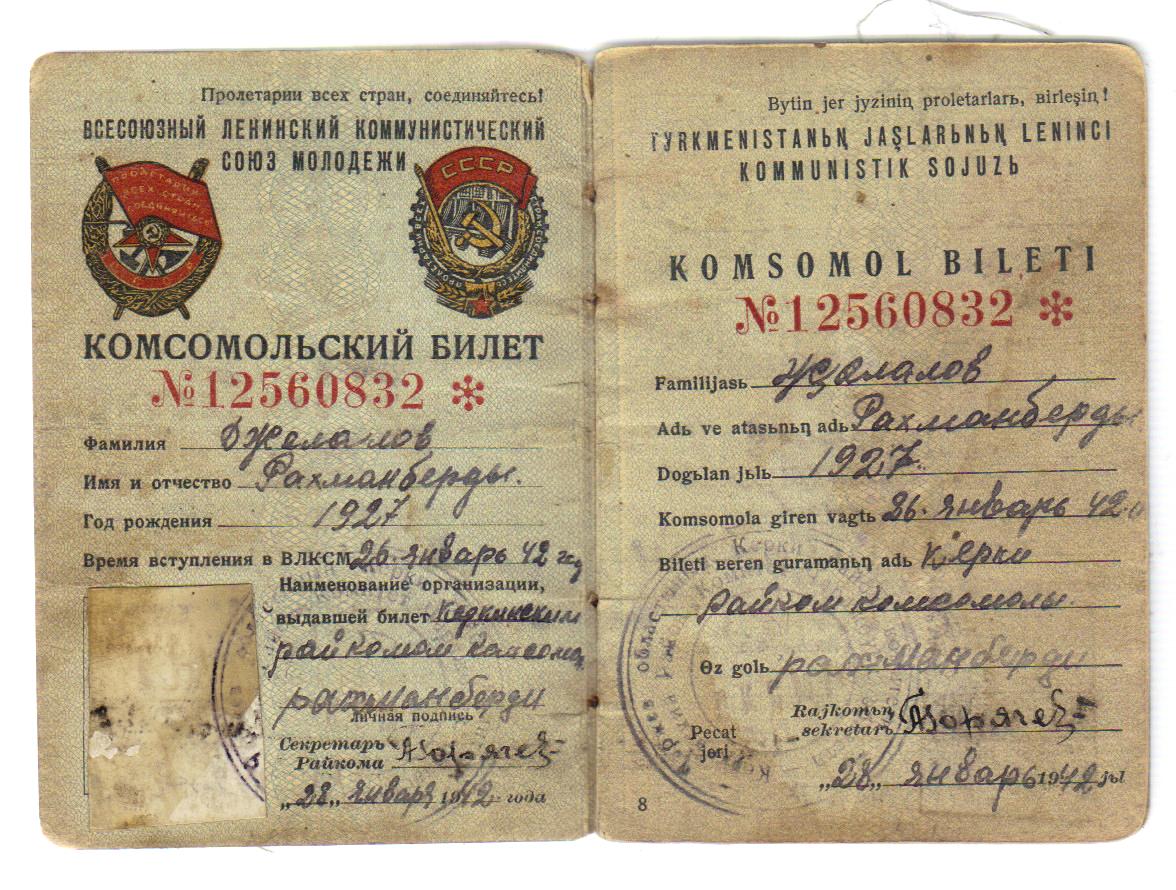 Пролетарии всех стран, соединяйтесь!
ВСЕСОЮЗНЫЙ ЛЕНИНСКИЙ КОММУНИСТИЧЕСКИЙ
СОЮЗ МОЛОДЕЖИ
ПРОЛЕТАРИИ
ВСЕХ СТРАН
СОЕДИНЯЙТЕСЬ
СССР
КОМСОМОЛЬСКИЙ БИЛЕТ
№12560832 *
Фамилия Джелалов
Имя и отчество Рахманберды.
Год рождения 1927
Время вступления в ВЛКСМ 26. январь 42 год
Наименование организации,
выдавшей билет Керкинским
райкомом комсомол
рахманберди
личная подпись
Секретарь
Райкома
„28„ январь 1942 года
Bytin jer jyziniꞑ proletarlarь, вirleşiꞑ!
TYRKMENISTANЬꞐ JAŞLARЬNЬꞐ LENINCI
KOMMUNISTIK SOJUZЬ
KOMSOMOL BILETI
№12560832 *
Familijasь Җалалов
Adь ve atasьnьꞑ adь Рахманберды
Dogьlan jьlь 1927
Komsomola giren vagtь 26. январь 42
Bileti вeren guramanьꞑ adь Керки
райком комсомолы
Өz golь рахманберди
Rajkomьꞑ
sekretarь
Pecat
jeri
„28„ январь 1942 jьl
8